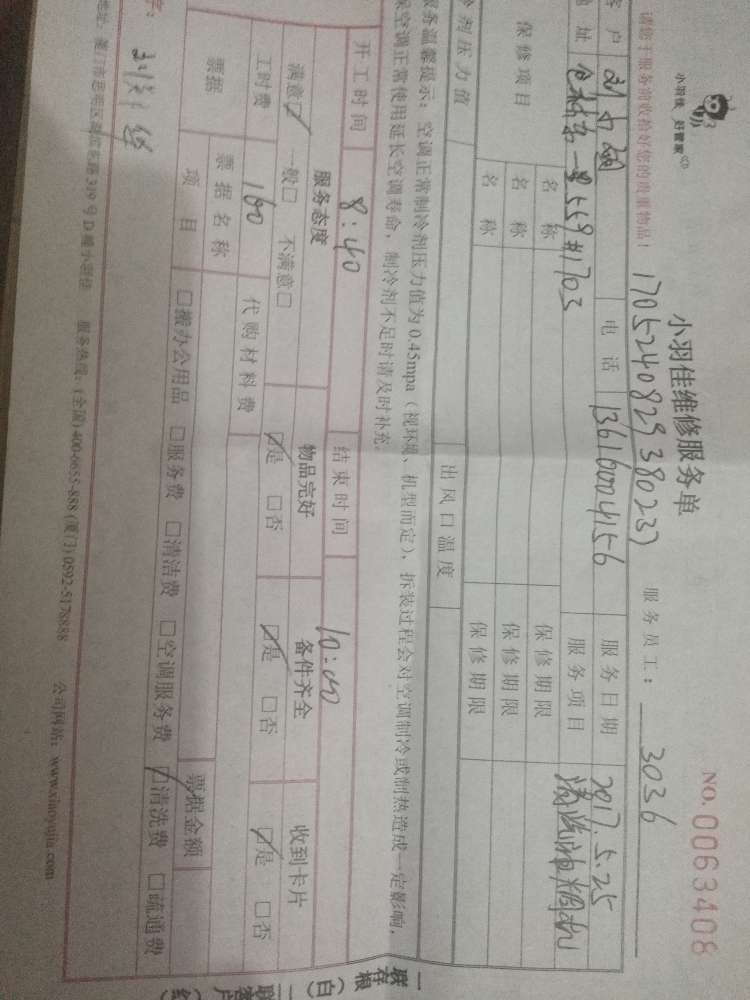 小羽佳 好管家
小羽佳维修服务单
NO.0063408
请您于服务前收拾好您的贵重物品！
1705240829380237
服务员工：3036
客户
电话 13616004156
服务日期 2017.5.25
地址 559#1703
服务项目 清洗油烟机
保修项目
名称
保修期限
名称
保修期限
名称
保修期限
冷剂压力值
出风口温度
服务温馨提示：空调正常制冷剂压力值为0.45mpa（视环境、机型而定），拆装过程会对空调制冷或制热造成一定影响，
保空调正常使用延长空调寿命，制冷剂不足时请及时补充。
开工时间 8:40
结束时间 10:00
服务态度
物品完好
备件齐全
收到卡片
满意☑ 一般□ 不满意□
☑是 □否
☑是 □否
☑是 □否
工时费 160
代购材料费
票据
票据名称
票据金额
项目
□搬办公用品 □服务费 □清洁费 □空调服务费 ☑清洗费 □疏通费
字：
319号D幢小羽佳
服务热线：(全国)400-0655-888 (厦门)0592-5178888
公司网站：www.xiaoyujia.com
一联存根（白）
二联客户（红）